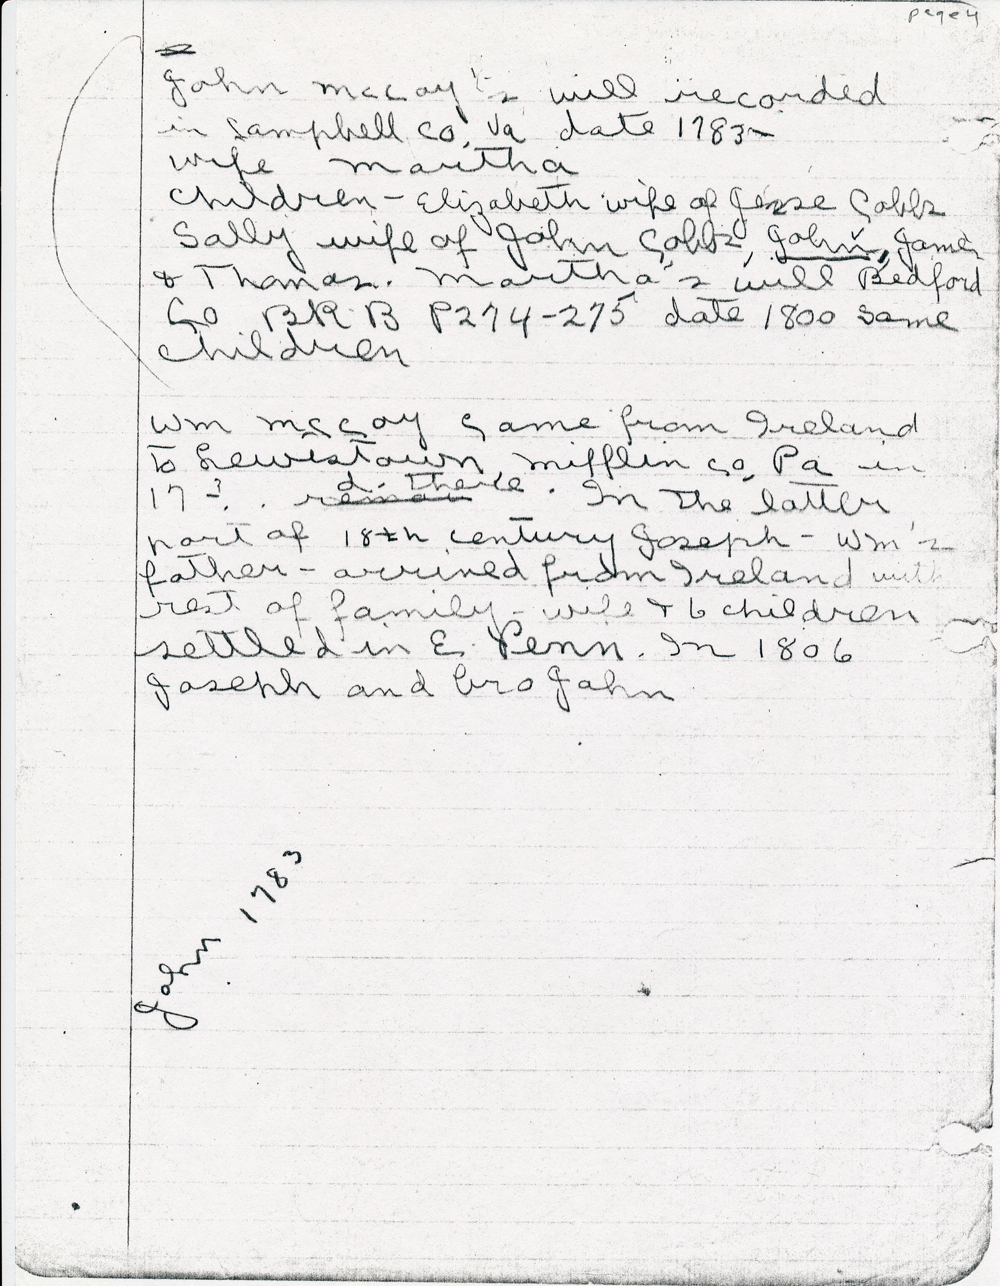 page 4
John McCoy's will recorded
in Campbell Co, Va date 1783-
wife Martha
children - Elizabeth wife of Jesse Cobbs
Sally wife of John Cobbs, John, James
& Thomas. Martha's will Bedford
Co BK B P274-275 date 1800 same
children
Wm McCoy came from Ireland
to Lewistown, Mifflin Co, Pa in
17-?. d. there. In the latter
part of 18th century Joseph - Wm's
father - arrived from Ireland with
rest of family - wife & 6 children
settled in E. Penn. In 1806
Joseph and bro John
John 1783